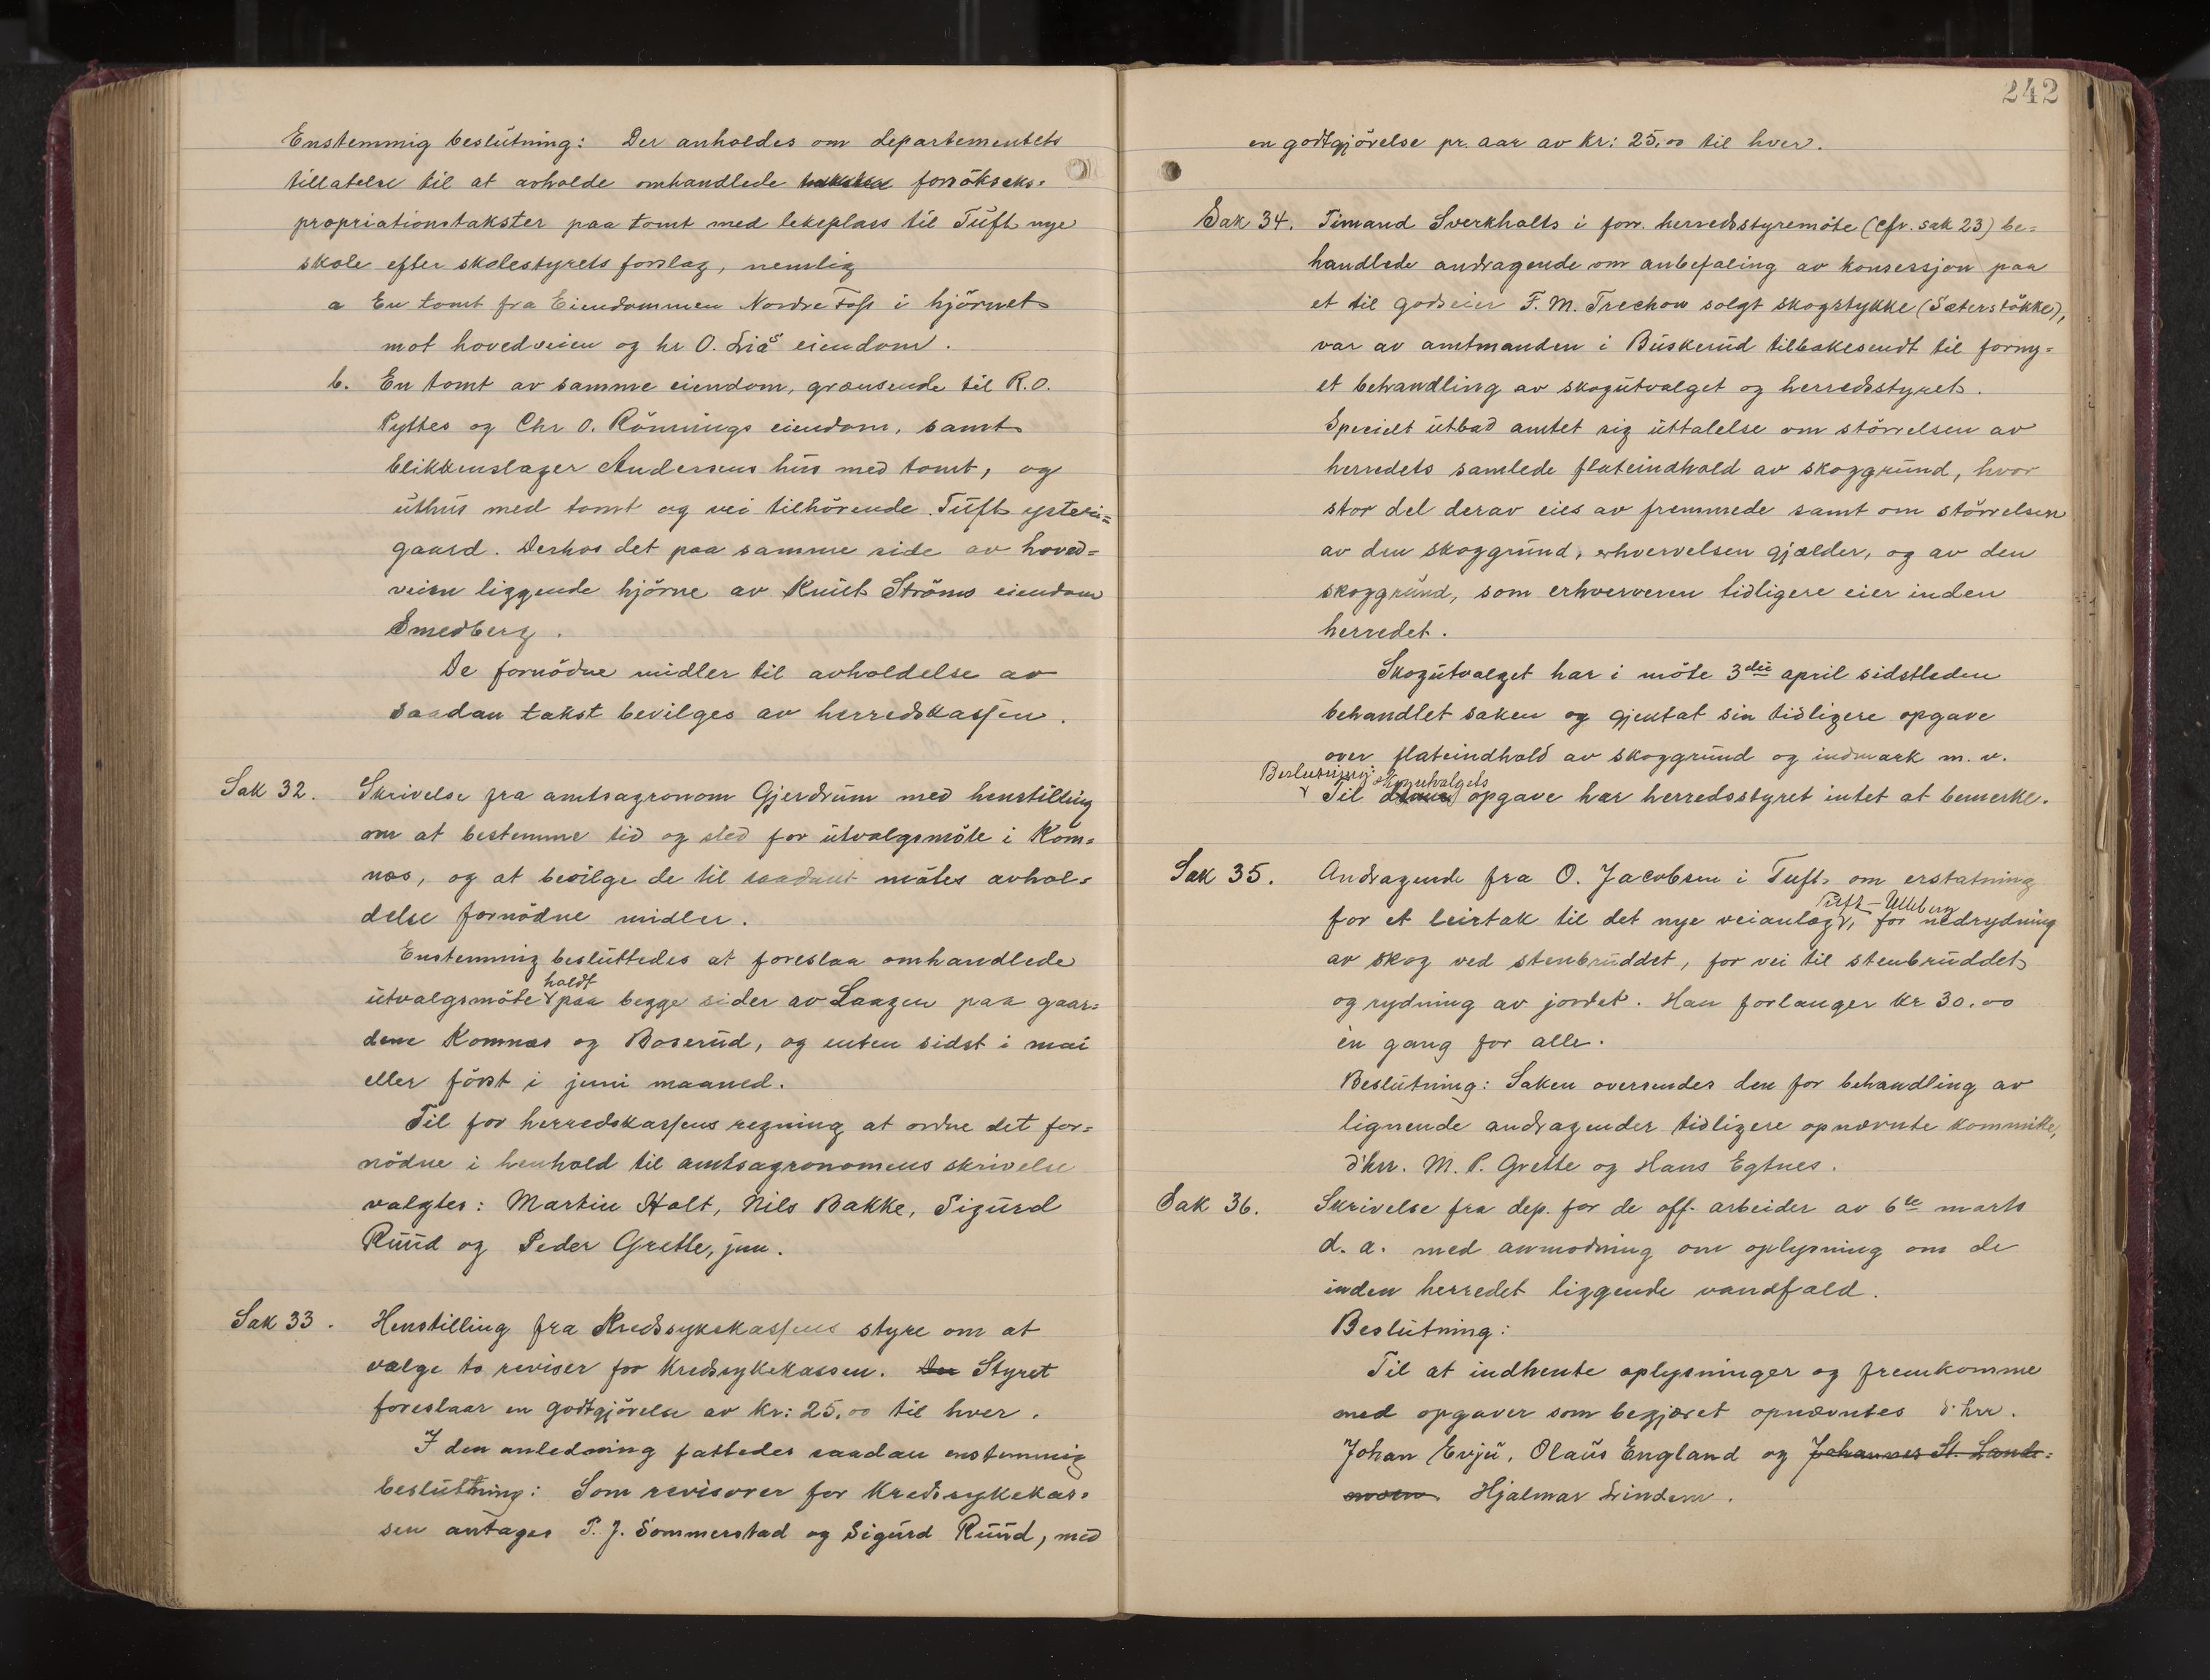 Enstemmig beslutning: Der anholdes om departementets
tillatelse til at avholde omhandlede takster forsökseks-
propriationstakster paa tomt med lekeplass til Tuft nye
skole efter skolestyrets forslag, nemlig
a En tomt fra Eiendommen Nordre Foss i hjörnet
mot hovedveien og hr O. Lias eiendom.
b. En tomt av samme eiendom, grænsende til R.O.
Pyttes og Chr O. Rönnings eiendom, samt
blikkenslager Andersens hus med tomt, og
uthus med tomt og vei tilhörende Tuft ysteri-
gaard. Derhos det paa samme side av hoved-
veien liggende hjörne av Knut Ströms eiendom
Smedberg.
De fornödne midler til avholdelse av
saadan takst bevilges av herredskassen.
Sak 32. Skrivelse fra amtsagronom Gjerdrum med henstilling
om at bestemme tid og sted for utvalgsmöte i Kom-
nes, og at bevilge de til saadant mötes avhol-
delse fornödne midler.
Enstemmig besluttedes at foreslaa omhandlede
utvalgsmöte holdt paa begge sider av Laagen paa gaar-
dene Komnæs og Boserud, og enten sidst i mai
eller först i juni maaned.
Til for herredskassens regning at ordne det for-
nödne i henhold til amtsagronomens skrivelse
valgtes: Martin Holt, Nils Bakke, Sigurd
Ruud og Peder Grette, jun.
Sak 33. Henstilling fra Kredssykekassens styre om at
vælge to reviser for kredssykekassen. Der Styret
foreslaar en godtgjörelse av kr: 25.00 til hver.
I den anledning fattedes saadan enstemmig
beslutning: Som revisorer for kredssykekas-
sen antages P. J. Sommerstad og Sigurd Ruud, med
242
en godtgjörelse pr. aar av kr: 25.00 til hver.
Sak 34. Timand Sverkholts i forr. herredsstyremöte (cfr. sak 23) be-
handlede andragende om anbefaling av konsessjon paa
et til godseier F. M. Treschow solgt skogstykke (Sæterstökke),
var av amtmanden i Buskerud tilbakesendt til forny-
et behandling av skogutvalget og herredsstyret.
Specielt utbad amtet sig uttalelse om störrelsen av
herredets samlede flateindhold av skoggrund, hvor
stor del derav eies av fremmede samt om störrelsen
av den skoggrund, erhvervelsen gjælder, og av den
skoggrund, som erhververen tidligere eier inden
herredet.
Skogutvalget har i möte 3die april sidstleden
behandlet saken og gjentat sin tidligere opgave
over flateindhold av skoggrund og indmark m. v.
Beslutning: skogutvalgets
Til denne opgave har herredsstyret intet at bemerke.
Sak 35. Andragende fra O. Jacobsen i Tuft om erstatning
Tuft - Ulleberg
for et leirtak til det nye veianlæg, for nedrydning
av skog ved stenbruddet, for vei til stenbruddet
og rydning av jordet. Han forlanger kr 30.00
én gang for alle.
Beslutning: Saken oversendes den for behandling av
lignende andragender tidligere opnævnte kommitte,
d'hrr. M. P. Grette og Hans Egtnes.
Sak 36. Skrivelse fra dep. for de off. arbeider av 6te marts
d. a. med anmodning om oplysning om de
inden herredet liggende vandfald.
Beslutning:
Til at indhente oplysninger og fremkomme
med opgaver som begjæret opnævntes d'hrr.
Johan Evju, Olaus England og Johannes St. Land-
Hjalmar Lindem.